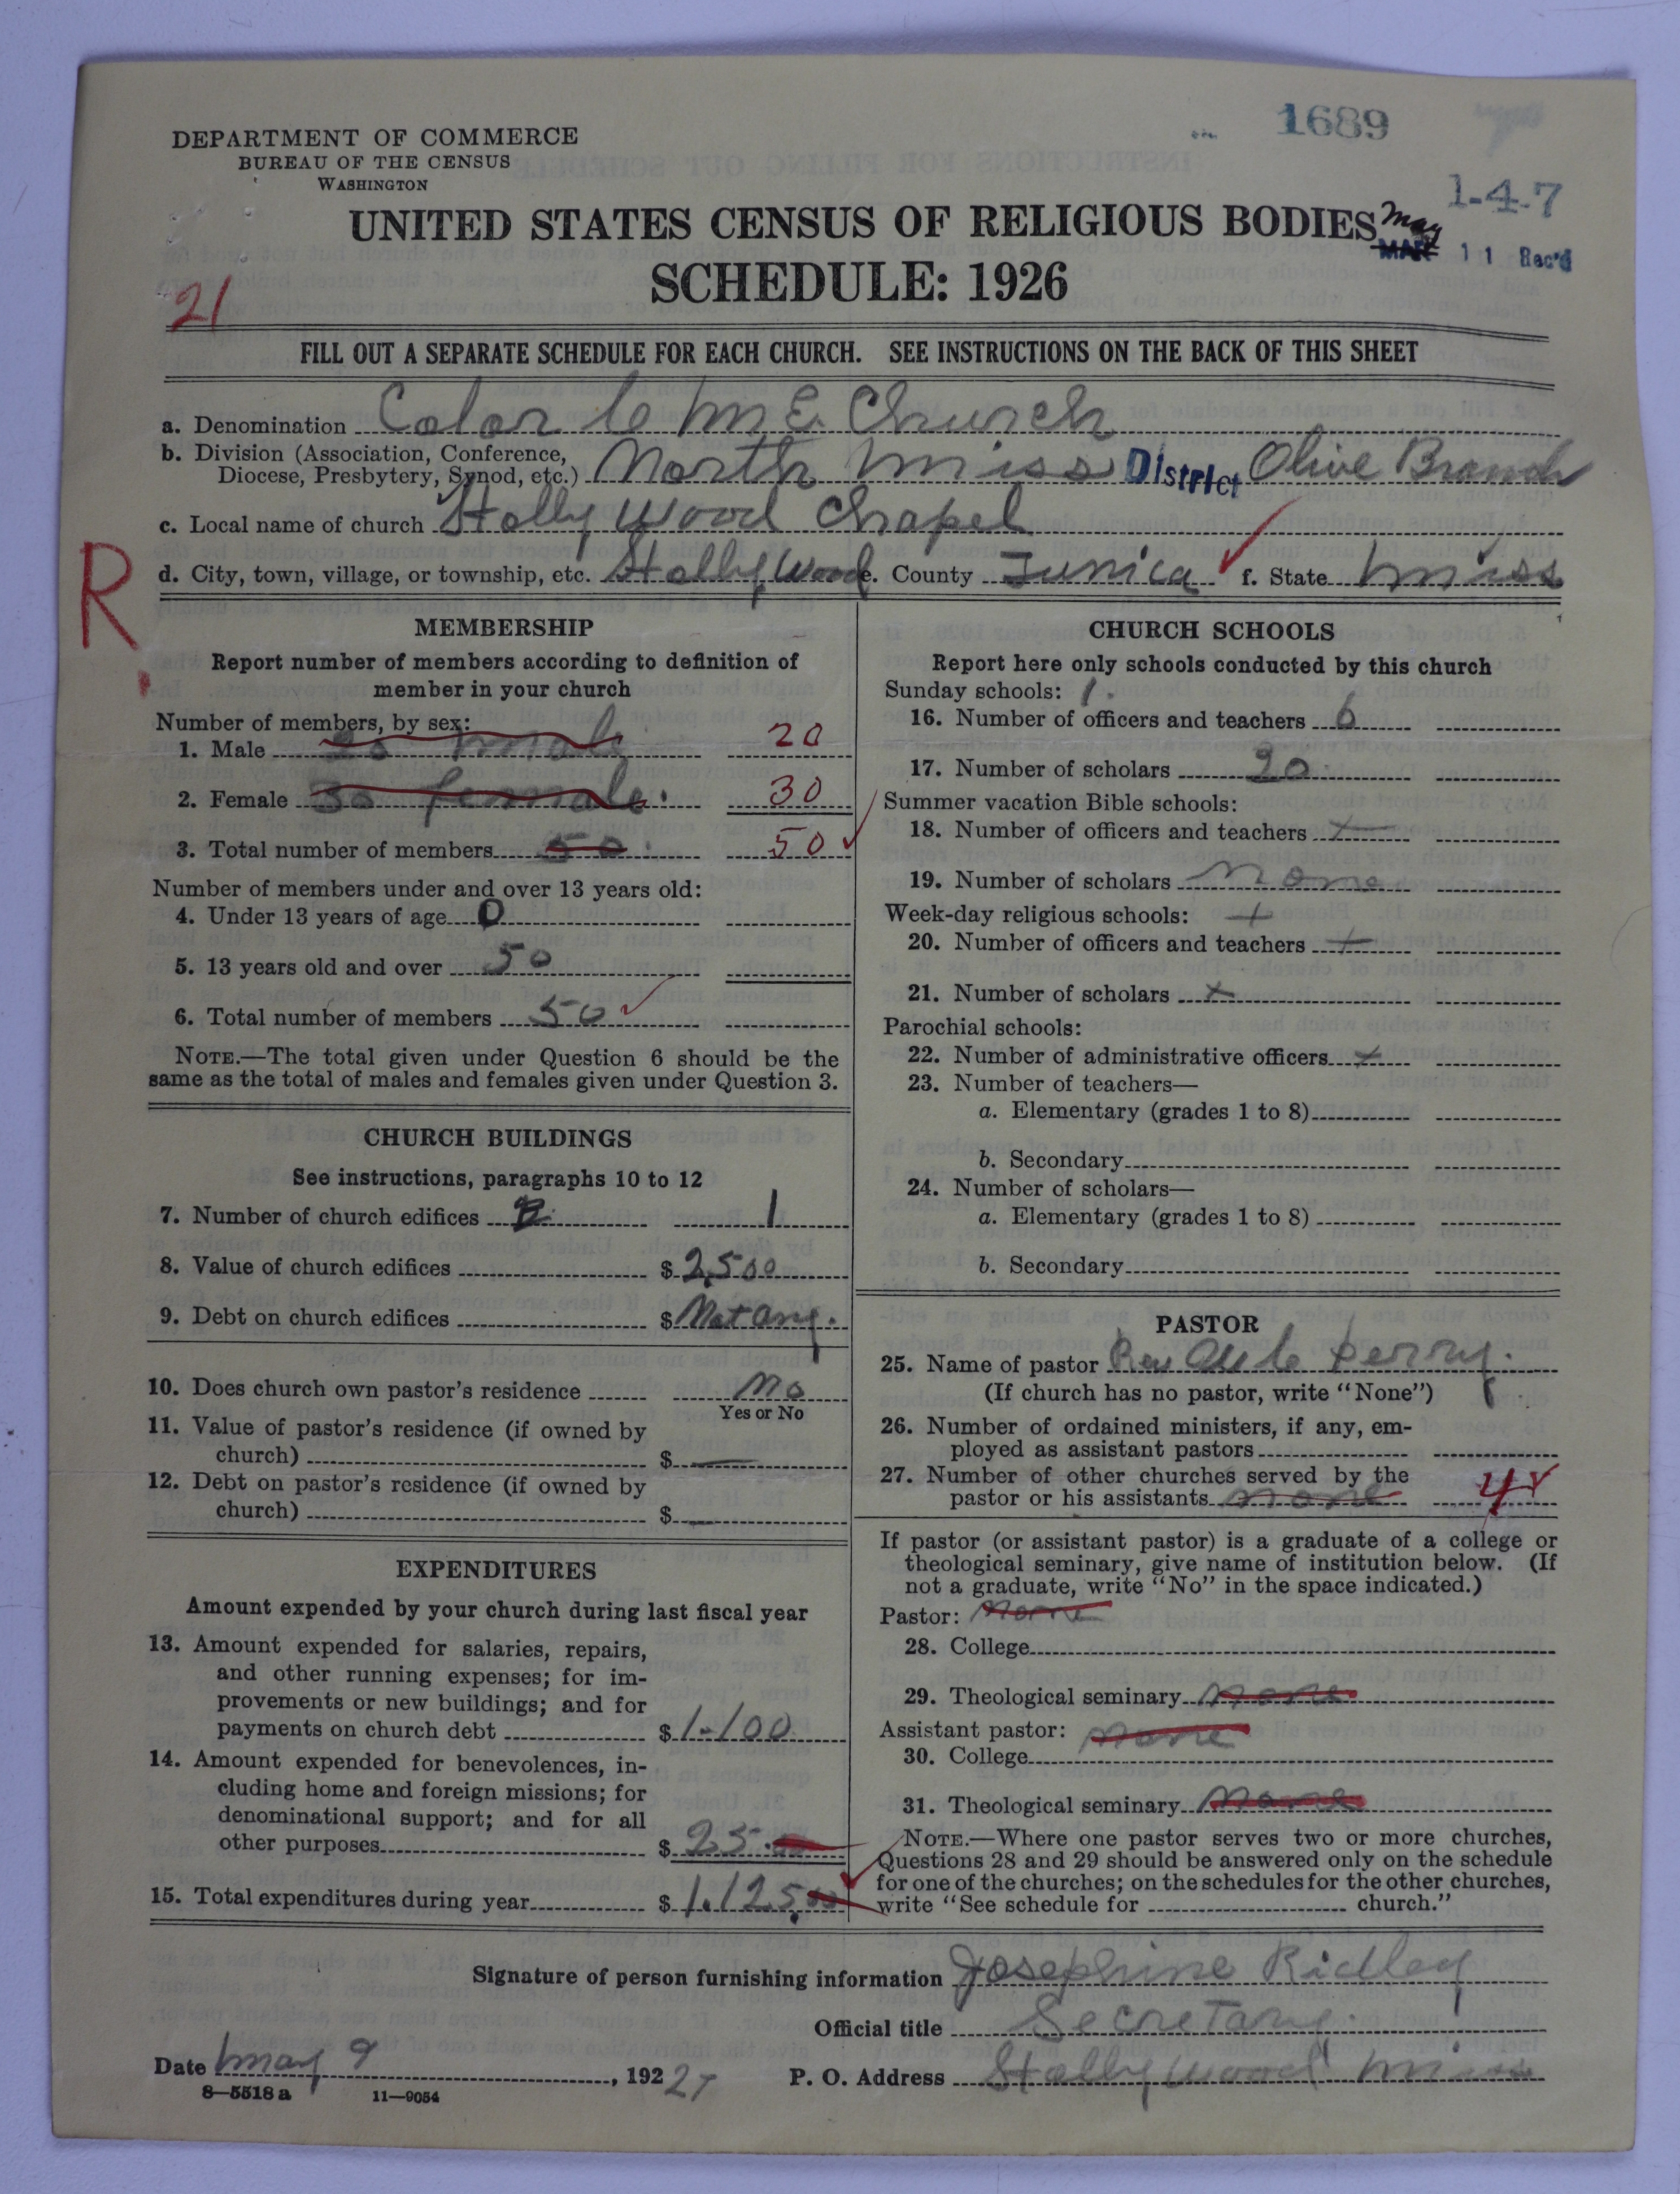 1689
DEPARTMENT OF COMMERCE
BUREAU OF THE CENSUS
WASHINGTON
1-4-7
UNITED STATES CENSUS OF RELIGIOUS BODIES
May
MAR 11 Rec'd
SCHEDULE: 1926
21
FILL OUT A SEPARATE SCHEDULE FOR EACH CHURCH. SEE INSTRUCTIONS ON THE BACK OF THIS SHEET
a. Denomination Color C M E Church
b. Division (Association, Conference,
Diocese, Presbytery, Synod, etc.) North Miss District Olive Branch
c. Local name of church Holly Wood Chapel
d. City, town, village, or township, etc. Holly Wood e. County Tunica f. State Miss
R
MEMBERSHIP
Report number of members according to definition of
member in your church
Number of members, by sex:
1. Male 20 male 20
2. Female 30 female. 30
3. Total number of members 50. 50
Number of members under and over 13 years old:
4. Under 13 years of age 0
5. 13 years old and over 50
6. Total number of members 50
NOTE.—The total given under Question 6 should be the
same as the total of males and females given under Question 3.
CHURCH BUILDINGS
See instructions, paragraphs 10 to 12
7. Number of church edifices 1
8. Value of church edifices $ 2,500
9. Debt on church edifices $ Not any.
10. Does church own pastor's residence No
Yes or No
11. Value of pastor's residence (if owned by
church) $ —
12. Debt on pastor's residence (if owned by
church) $ —
EXPENDITURES
Amount expended by your church during last fiscal year
13. Amount expended for salaries, repairs,
and other running expenses; for im-
provements or new buildings; and for
payments on church debt $ 1.100
14. Amount expended for benevolences, in-
cluding home and foreign missions; for
denominational support; and for all
other purposes $ 25.00
15. Total expenditures during year $ 1.125.00
CHURCH SCHOOLS
Report here only schools conducted by this church
Sunday schools: 1.
16. Number of officers and teachers 6
17. Number of scholars 20
Summer vacation Bible schools:
18. Number of officers and teachers
19. Number of scholars None
Week-day religious schools: +
20. Number of officers and teachers +
21. Number of scholars x
Parochial schools:
22. Number of administrative officers x
23. Number of teachers—
a. Elementary (grades 1 to 8)
b. Secondary
24. Number of scholars—
a. Elementary (grades 1 to 8)
b. Secondary
PASTOR
25. Name of pastor Rev Perry.
(If church has no pastor, write "None")
26. Number of ordained ministers, if any, em-
ployed as assistant pastors
27. Number of other churches served by the
pastor or his assistants none 4
If pastor (or assistant pastor) is a graduate of a college or
theological seminary, give name of institution below. (If
not a graduate, write "No" in the space indicated.)
Pastor: None
28. College
29. Theological seminary None
Assistant pastor: None
30. College
31. Theological seminary None
NOTE.—Where one pastor serves two or more churches,
Questions 28 and 29 should be answered only on the schedule
for one of the churches; on the schedules for the other churches,
write "See schedule for church."
Signature of person furnishing information Josephine Ridley
Official title Secretary.
Date May 9, 1927 P. O. Address Holly wood Miss
8—5518 a 11—9054